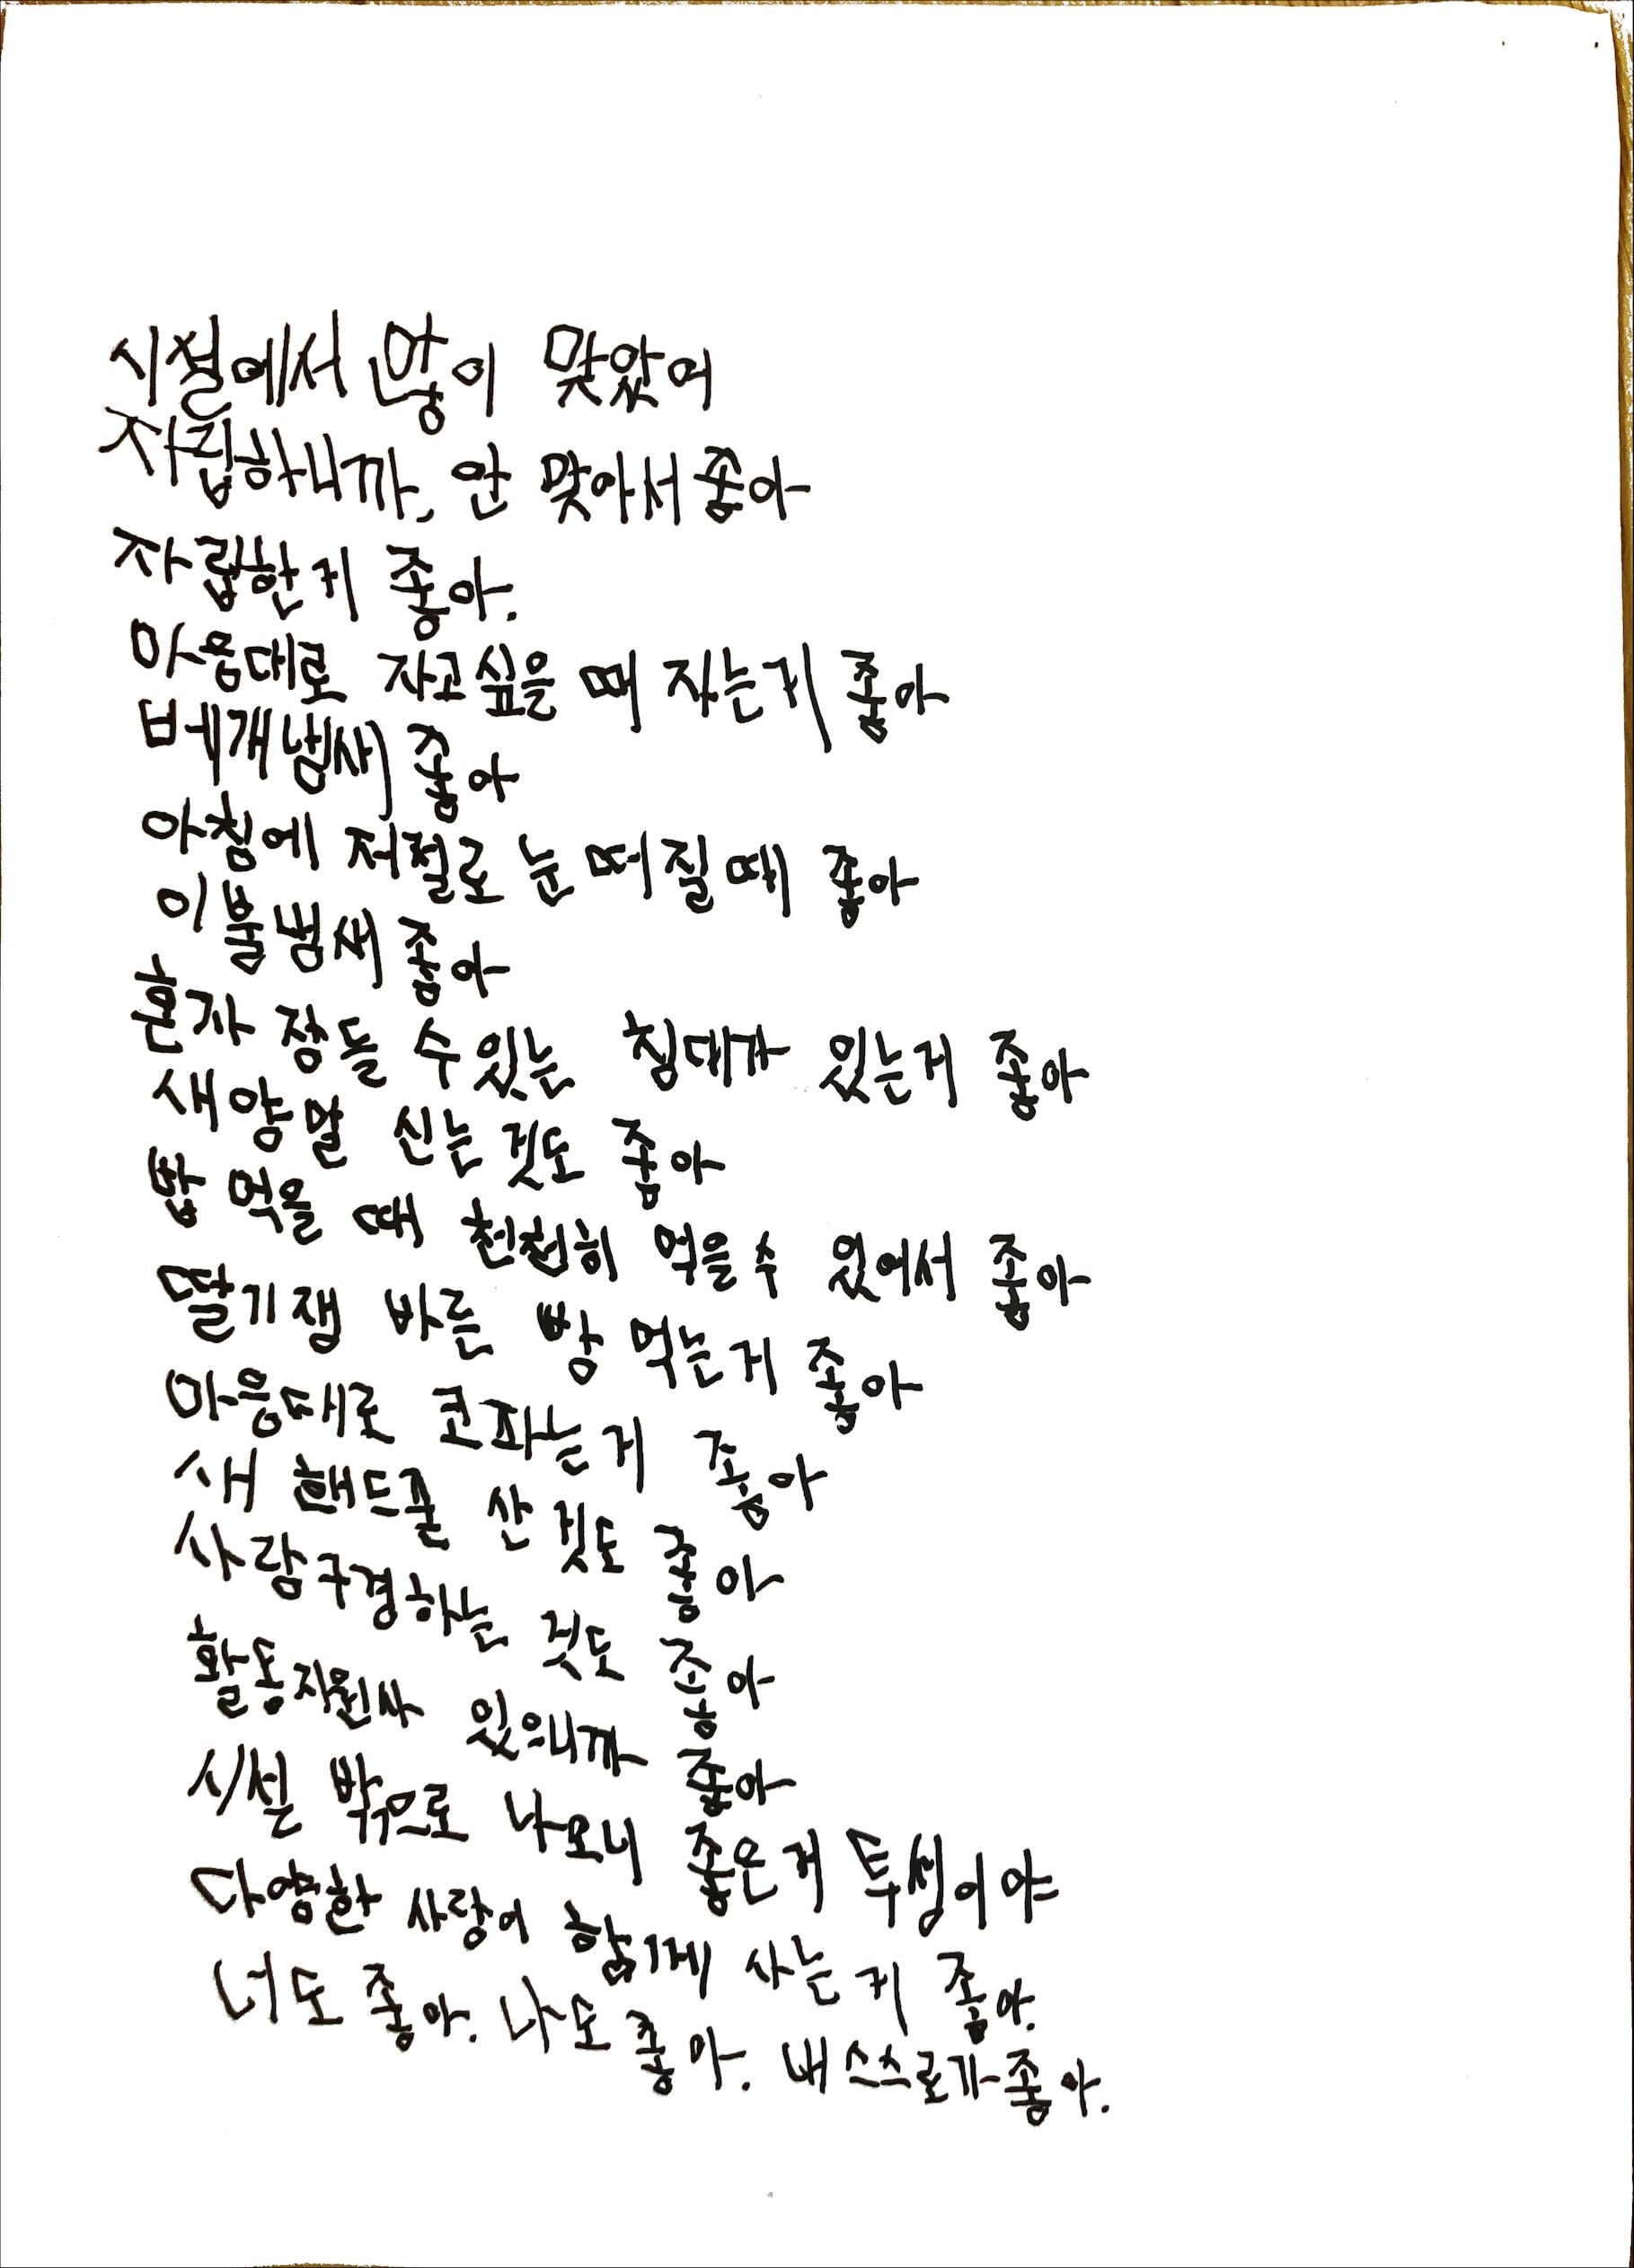 시설에서 많이 맞았어
자립하니까, 안 맞아서 좋아
자립한게 좋아.
마음대로 자고싶을 때 자는게 좋아
베개냄새 좋아
아침에 저절로 눈 떠질때 좋아
이불냄새 좋아
혼자 잠들 수 있는 침대가 있는게 좋아
새양말 신는 것도 좋아
밥 먹을 때 천천히 먹을 수 있어서 좋아
딸기잼 바른 빵 먹는게 좋아
마음대로 코파는게 좋아
새 핸드폰 산 것도 좋아
사람구경하는 것도 좋아
활동지원사 있으니까 좋아
시설 밖으로 나오니 좋은게 투성이야
다양한 사람이 함께 사는게 좋아.
너도 좋아. 나도 좋아. 내 스스로가 좋아.